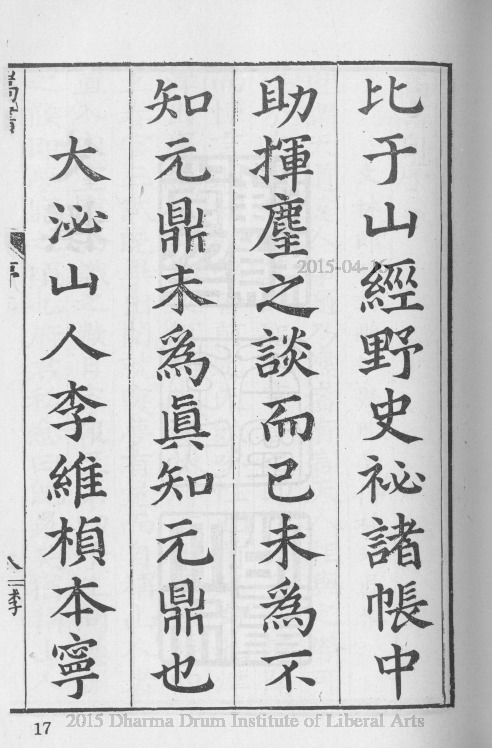 比于山經野史祕諸帳中
助揮麈之談而已未為不
知元鼎未為眞知元鼎也
大泌山人李維楨本寧
序
17
2015-04-16
2015 Dharma Drum Institute of Liberal Arts